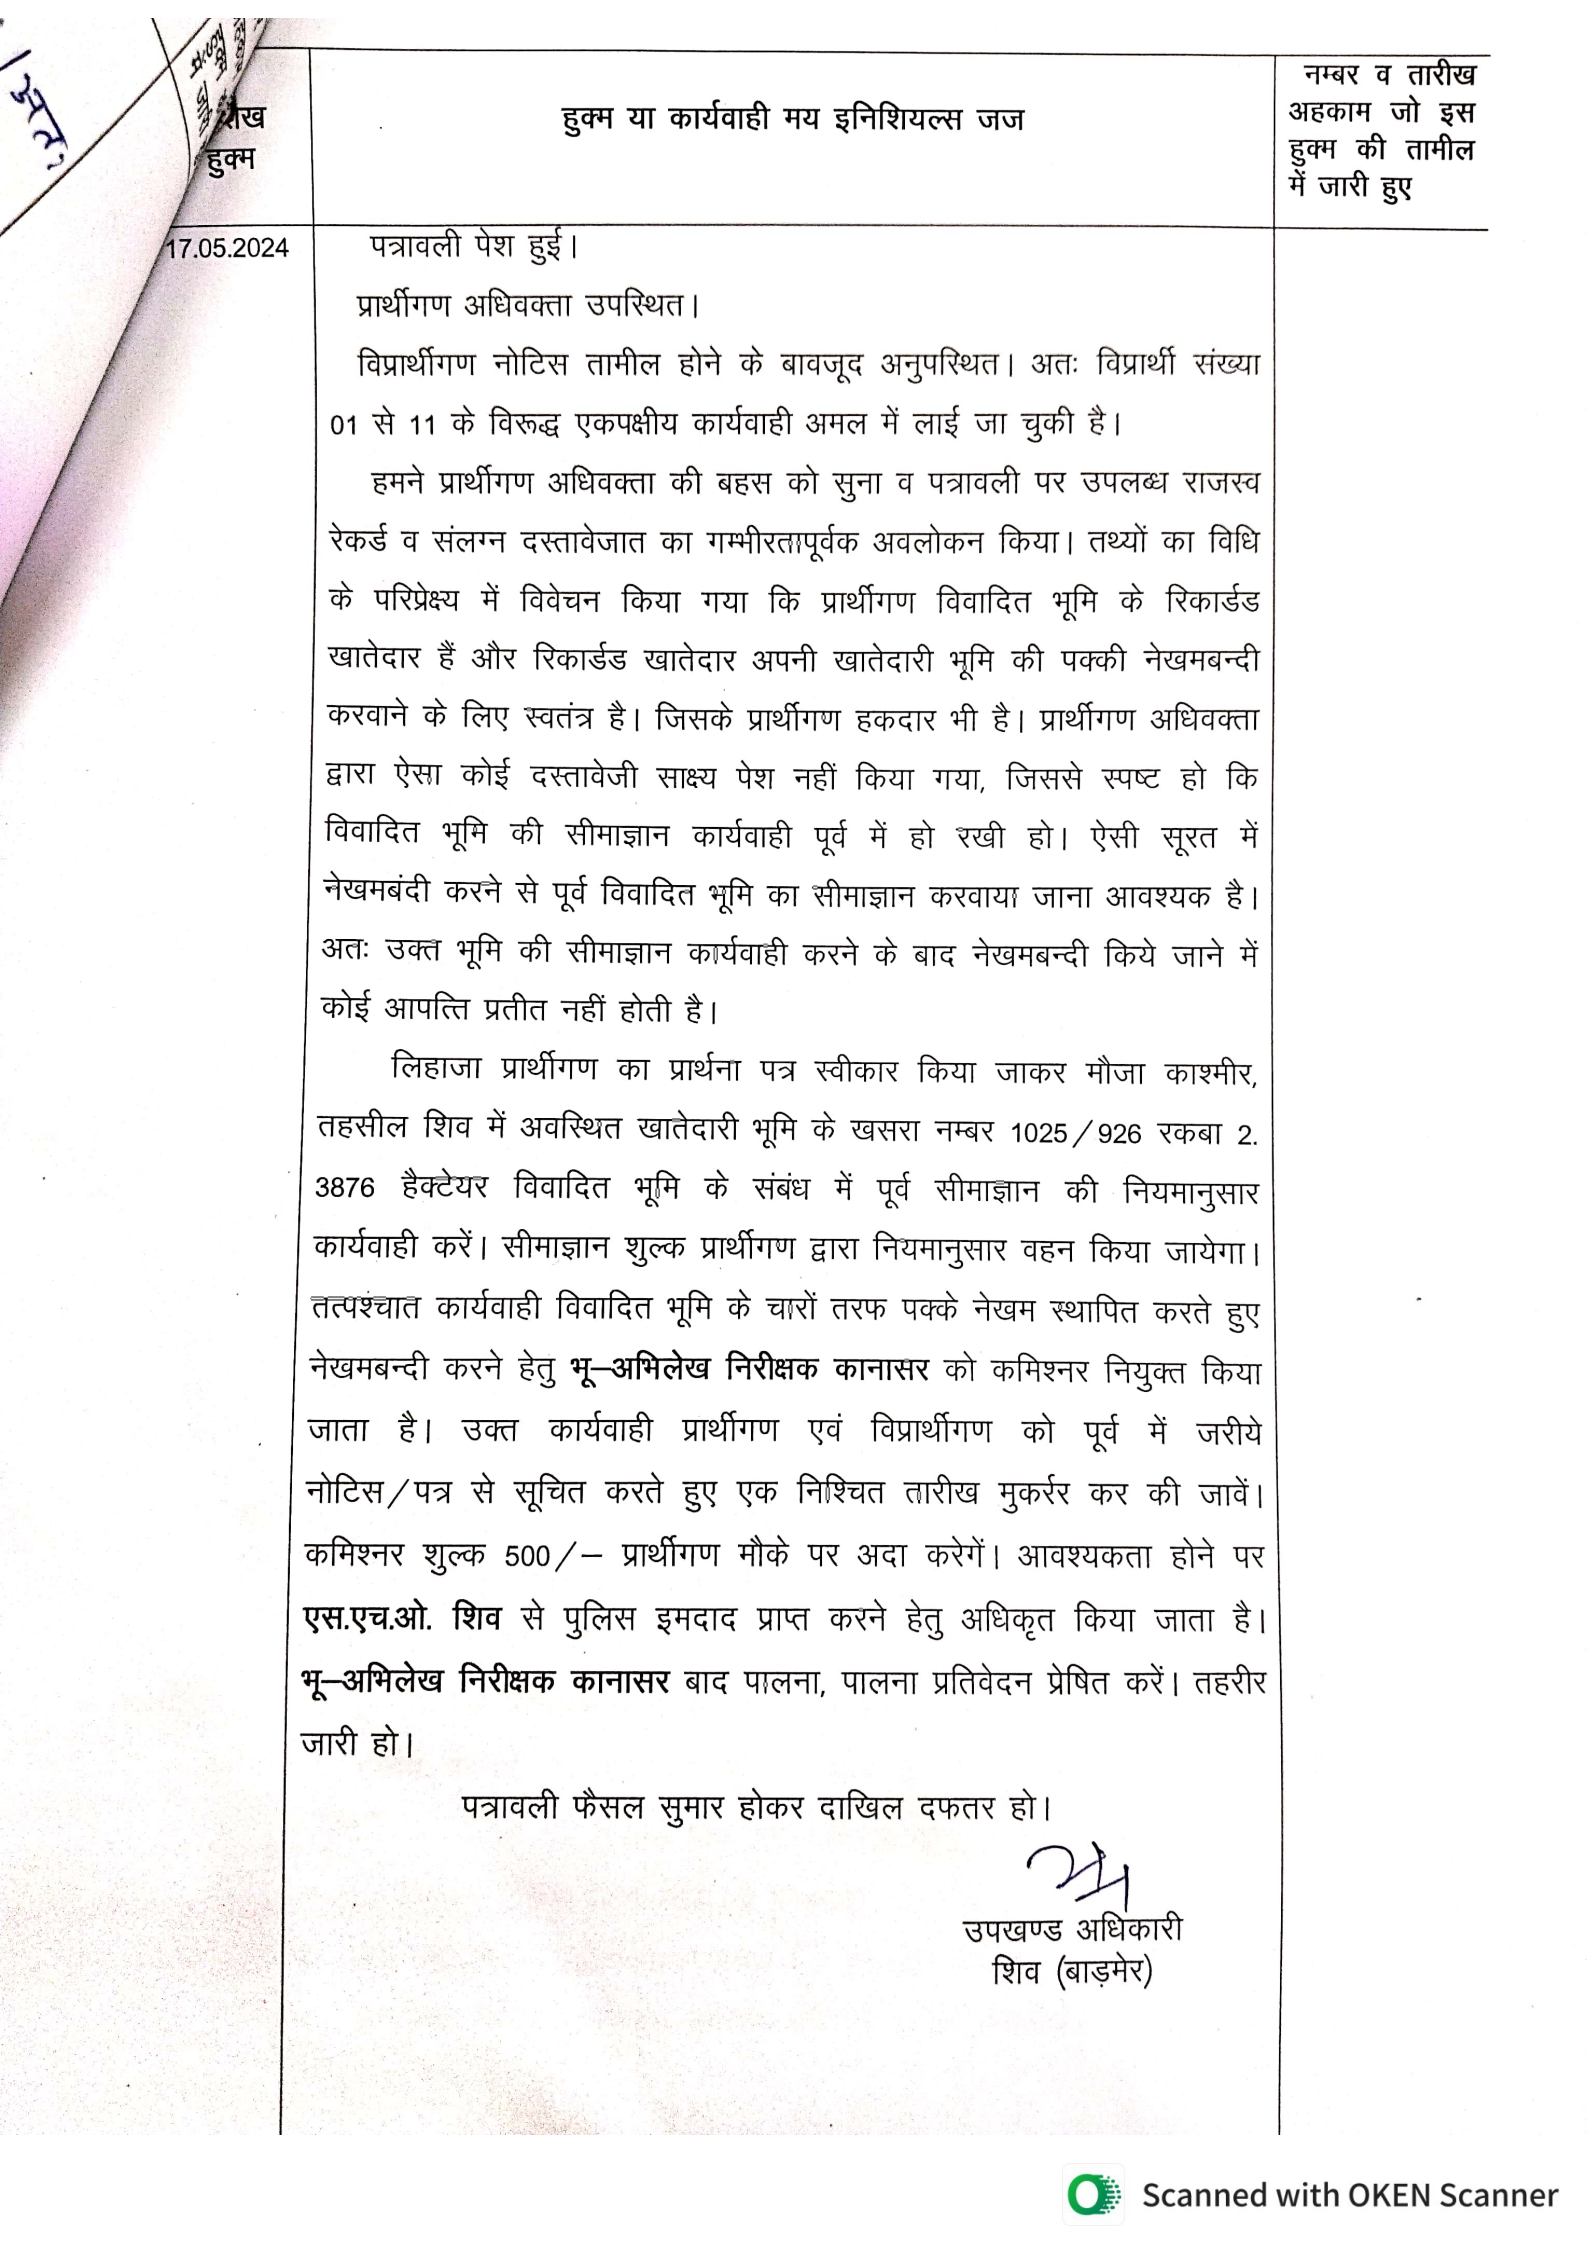 हुक्म
हुक्म या कार्यवाही मय इनिशियल्स जज
नम्बर व तारीख
अहकाम जो इस
हुक्म की तामील
में जारी हुए
17.05.2024
पत्रावली पेश हुई।
प्रार्थीगण अधिवक्ता उपस्थित।
विप्रार्थीगण नोटिस तामील होने के बावजूद अनुपस्थित। अतः विप्रार्थी संख्या
01 से 11 के विरूद्ध एकपक्षीय कार्यवाही अमल में लाई जा चुकी है।
हमने प्रार्थीगण अधिवक्ता की बहस को सुना व पत्रावली पर उपलब्ध राजस्व
रेकर्ड व संलग्न दस्तावेजात का गम्भीरतापूर्वक अवलोकन किया। तथ्यों का विधि
के परिप्रेक्ष्य में विवेचन किया गया कि प्रार्थीगण विवादित भूमि के रिकार्डड
खातेदार हैं और रिकार्डड खातेदार अपनी खातेदारी भूमि की पक्की नेखमबन्दी
करवाने के लिए स्वतंत्र है। जिसके प्रार्थीगण हकदार भी है। प्रार्थीगण अधिवक्ता
द्वारा ऐसा कोई दस्तावेजी साक्ष्य पेश नहीं किया गया, जिससे स्पष्ट हो कि
विवादित भूमि की सीमाज्ञान कार्यवाही पूर्व में हो रखी हो। ऐसी सूरत में
नेखमबंदी करने से पूर्व विवादित भूमि का सीमाज्ञान करवाया जाना आवश्यक है।
अतः उक्त भूमि की सीमाज्ञान कार्यवाही करने के बाद नेखमबन्दी किये जाने में
कोई आपत्ति प्रतीत नहीं होती है।
लिहाजा प्रार्थीगण का प्रार्थना पत्र स्वीकार किया जाकर मौजा काश्मीर,
तहसील शिव में अवस्थित खातेदारी भूमि के खसरा नम्बर 1025/926 रकबा 2.
3876 हैक्टेयर विवादित भूमि के संबंध में पूर्व सीमाज्ञान की नियमानुसार
कार्यवाही करें। सीमाज्ञान शुल्क प्रार्थीगण द्वारा नियमानुसार वहन किया जायेगा।
तत्पश्चात कार्यवाही विवादित भूमि के चारों तरफ पक्के नेखम स्थापित करते हुए
नेखमबन्दी करने हेतु भू–अभिलेख निरीक्षक कानासर को कमिश्नर नियुक्त किया
जाता है। उक्त कार्यवाही प्रार्थीगण एवं विप्रार्थीगण को पूर्व में जरीये
नोटिस/पत्र से सूचित करते हुए एक निश्चित तारीख मुकर्रर कर की जावें।
कमिश्नर शुल्क 500/– प्रार्थीगण मौके पर अदा करेगें। आवश्यकता होने पर
एस.एच.ओ. शिव से पुलिस इमदाद प्राप्त करने हेतु अधिकृत किया जाता है।
भू–अभिलेख निरीक्षक कानासर बाद पालना, पालना प्रतिवेदन प्रेषित करें। तहरीर
जारी हो।
पत्रावली फैसल सुमार होकर दाखिल दफतर हो।
उपखण्ड अधिकारी
शिव (बाड़मेर)
Scanned with OKEN Scanner